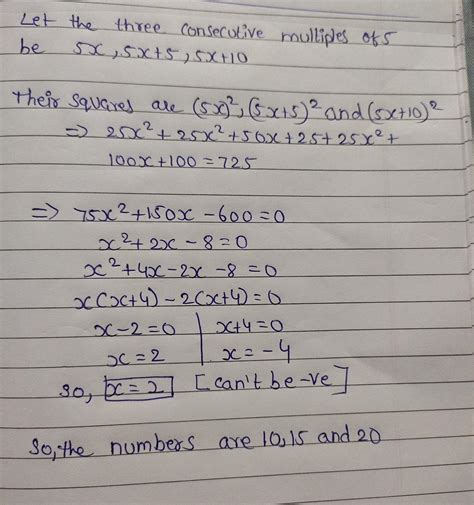 Let the three consecutive multiples of 5
be 5x, 5x+5, 5x+10
Their squares are (5x)², (5x+5)² and (5x+10)²
⇒ 25x² + 25x² + 50x + 25 + 25x² +
100x + 100 = 725
⇒ 75x² + 150x - 600 = 0
x² + 2x - 8 = 0
x² + 4x - 2x - 8 = 0
x(x+4) - 2(x+4) = 0
x - 2 = 0 | x + 4 = 0
x = 2 | x = -4
So, x = 2 [can't be -ve]
So, the numbers are 10, 15 and 20